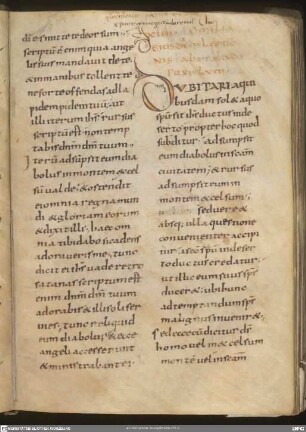 dī es mitte te deorsum
scriptū ē enim quia ange
lis suis mandavit de te
& in manibus tollent te
ne forte offendas ad la
pidem pedem tuū; ait
illi iterum ih̄s rursus
scriptū est non temp
tabis dn̄m dm̄ tuum
Iterū adsūpsit eum dia
bolus in montem excel
sū valde; & ostendit
ei omnia regna mun
di & gloriam eorum
& dix̄ illi; haec om
nia tibi dabo si cadens
adoraveris me; tunc
dicit ei ih̄s vade retro
satanas scriptum est
enim dn̄m dm̄ tuum
adorabis & illi soli ser
vies; tunc reliquid
eum diabolus & ecce
angeli accesserunt
& ministrabant ei
DUBITARI A QUI
busdam sol& a quo
spū sit ih̄s ductus in de
serto propter hoc quod
subditur; adsumpsit
eum diabolus in scām
civitatem; & rursus
adsumpsit eum in
montem excelsum;
sed vere &
absq; ulla questione
convenienter accipi
tur; ut a scō spū in deser
to ductus credatur
ut illuc eum suus sp̄s
duceret; ubi hunc
ad temptandum sp̄s
malignus inveniret;
Sed ecce cū dicitur ds̄
homo vel in excelsum
montē vel in scam